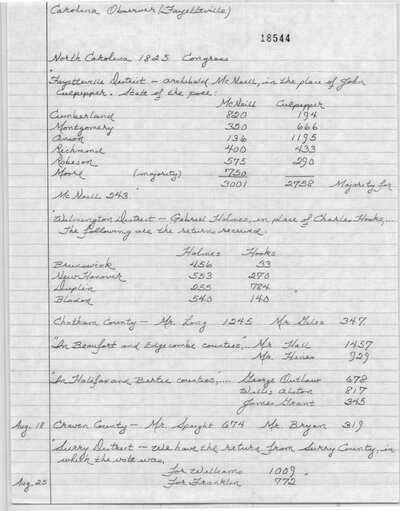 Carolina Observer (Fayetteville)
18544
North Carolina 1825 Congress
"Fayetteville District - Archibald McNeill, in the place of John
Culpepper. State of the poll:
McNeill Culpepper
Cumberland 820 194
Montgomery 320 666
Anson 136 1195
Richmond 400 433
Robeson 575 290
Moore (majority) 750
3001 2758 Majority for
McNeill 243."
"Wilmington District - Gabriel Holmes, in place of Charles Hooks,...
The following are the returns received:
Holmes Hooks
Brunswick 456 33
New Hanover 553 270
Duplin 255 784
Bladen 540 140 "
Chatham County - Mr. Long 1245 Mr. Giles 347.
"In Beaufort and Edgecombe counties,... Mr. Hall 1457
Mr. Hines 929
"In Halifax and Bertie counties,.... George Outlaw 678
Willis Alston 817
James Grant 345
Aug. 18 Craven County - Mr. Spaight 674 Mr. Bryan 319
"Surry District - We have the return from Surry County, in
which the vote was,
For Williams 1009 "
Aug. 25 For Franklin 772